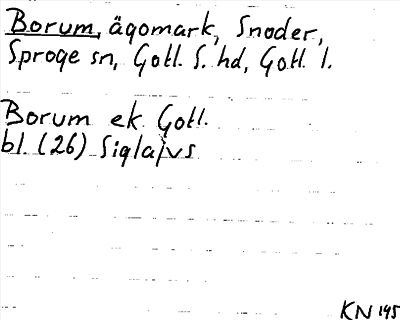 Borum, ägomark, Snoder,
Sproge sn, Gotl. S. hd, Gotl. l.
Borum ek. Gotl.
bl. (26) Siglajvs
KN 145